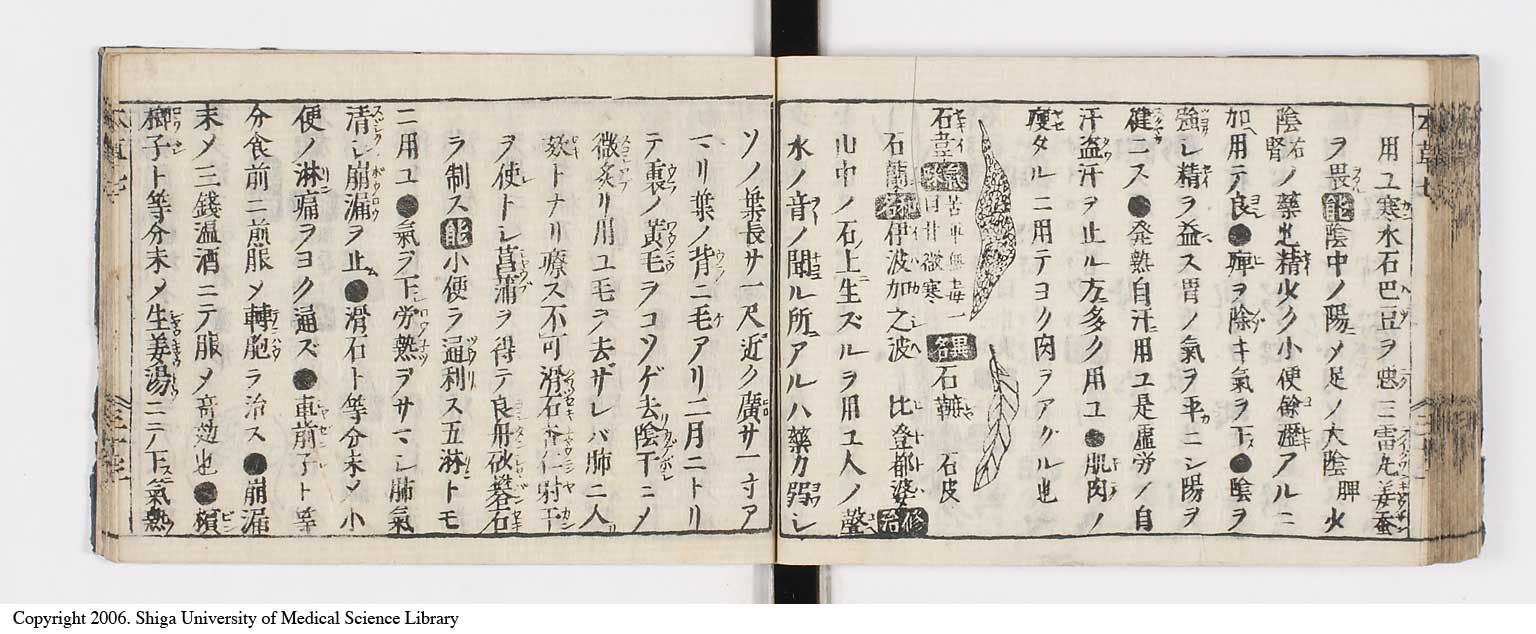 用ユ寒水石巴豆ヲ忌ニ雷丸姜蚕
ヲ畏能陰中ノ陽ニメ足ノ大陰脾火
陰右腎ノ藥也精火クノ小便餘瀝アルニ
加用テ良●痺ヲ除キ氣ヲ下●陰ヲ
強レ精ヲ益ス胃ノ氣ヲ平ニシ陽ヲ
健ニス●発熱自汗ニ用ユ是虚労ノ自
汗盗汗ヲ止ル方多ク用ユ●肌肉ノ
痩タルニ用テヨク肉ヲアグル也
石韋氣味苦平無毒一曰甘微寒異名石䩾 石皮
石蘭和名伊波加之波 比登都婆修治
山中ノ石上ニ生ズルヲ用ユ人ノ聲
水ノ音ノ聞ル所ニアルハ藥力弱シ
ソノ葉長サ一尺近ク廣サ一寸ア
マリ葉ノ背ニ毛アリ二月ニトリ
テ裏ノ黄毛ヲコソゲ去陰干ニメ
微炙リ用ユ毛ヲ去ザレバ肺ニ入
欬トナリ療ス不可滑石杏仁射干
ヲ使トレ菖蒲ヲ得テ良丹砂礬石
ヲ制ス能小便ヲ通利ス五淋トモ
ニ用ユ●氣ヲ下労熱ヲサマシ肺氣
清シ崩漏ヲ止ム●滑石ト等分末メ小
便ノ淋痛ヲヨク通ズ●車前子ト等
分食前ニ煎服メ轉胞ヲ治ス●崩漏
末メ三錢温酒ニテ服メ奇効也●檳
榔子ト等分末メ生姜湯ニテ下ス氣熱
本草七
Copyright 2006. Shiga University of Medical Science Library